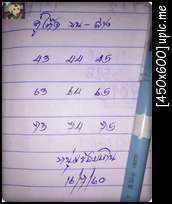 คู่โต๊ด บน-ล่าง
43 44 45
63 64 65
73 74 75
16/7/60
[450x600] upic.me